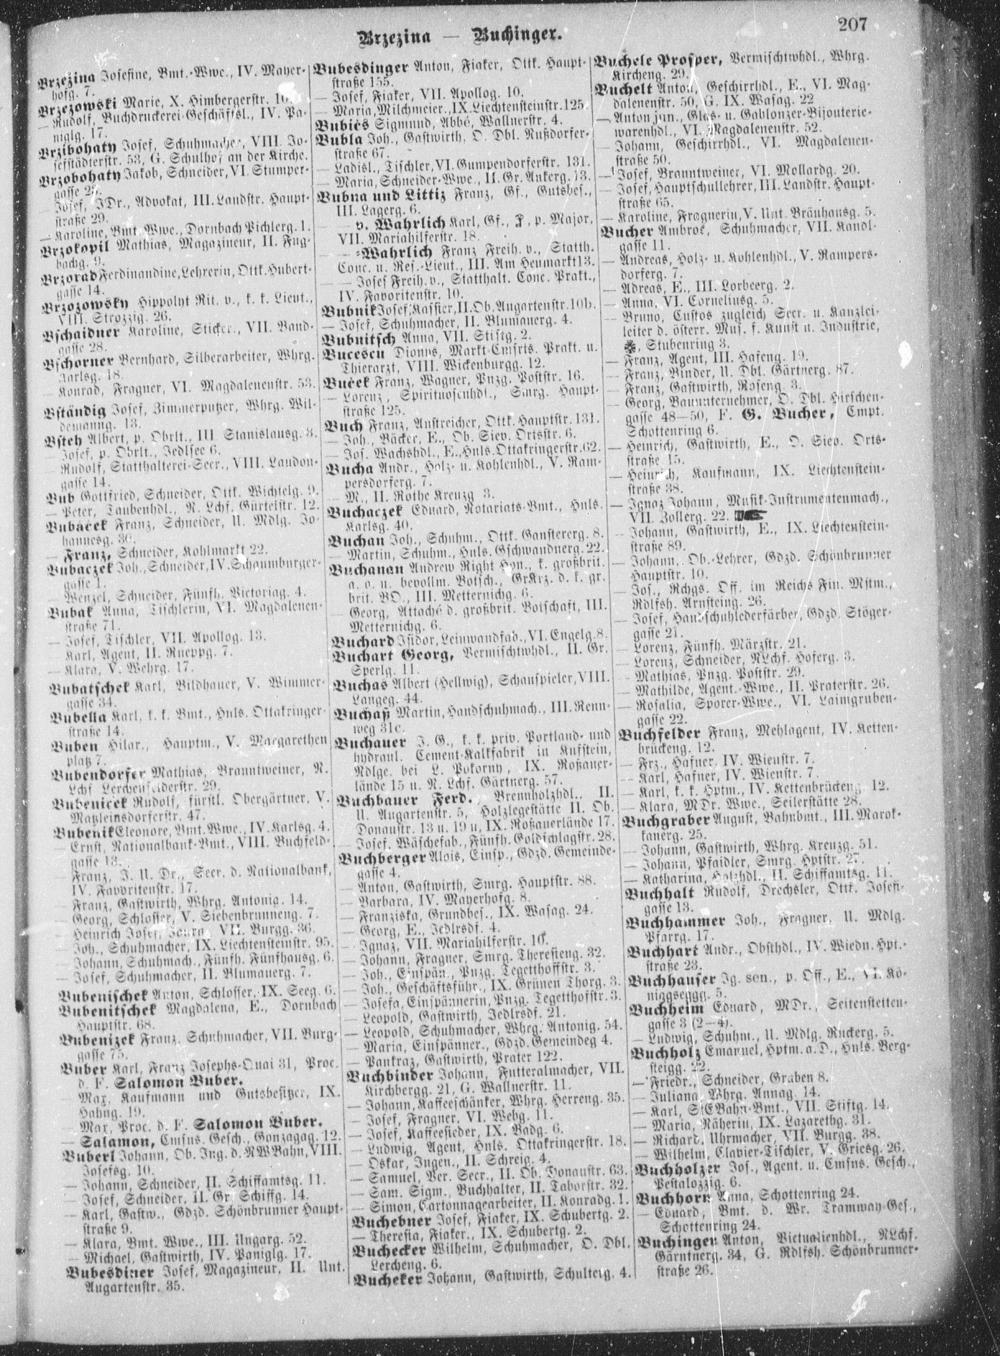 Brzezina — Buchinger.
207
Brzezina Josefine, Bmt.-Wwe., IV. Mayer-
hofg. 7.
Brzezowski Marie, X. Himbergerstr. 10.
— Rudolf, Buchdruckerei-Geschäftsl., IV. Pa-
niglg. 17.
Brzibohaty Josef, Schuhmacher, VIII. Jo-
sefstädterstr. 53, G. Schulhof an der Kirche.
Brzobohaty Jakob, Schneider, VI. Stumper-
gasse
— Josef, JDr., Advokat, III. Landstr. Haupt-
straße 29.
— Karoline, Bmt. Wwe., Dornbach Pichlerg. 1.
Brzokopil Mathias, Magazineur, II. Fug-
bachg. 9.
Brzorad Ferdinandine, Lehrerin, Ottk. Hubert-
gasse 14.
Brzozowsky Hippolyt Rit. v., k. k. Lieut.,
VIII. Strozzig. 26.
Bschaidner Karoline, Sticker., VII. Band-
gasse 28.
Bschorner Bernhard, Silberarbeiter, Whrg.
Karlsg. 18.
— Konrad, Fragner, VI. Magdalenenstr. 53.
Bständig Josef, Zimmerputzer, Whrg. Wil-
demanng. 13.
Bsteh Albert, p. Obrlt., III. Stanislausg. 3.
— Josef, p. Obrlt., Jedlsee 6.
— Rudolf, Statthalterei-Secr., VIII. Laudon-
gasse 14.
Bub Gottfried, Schneider, Ottk. Wichtelg. 9.
— Peter, Taubenhdl., N. Lchf. Gürtelstr. 12.
Bubacek Franz, Schneider, U. Mdlg. Jo-
hannesg. 30.
— Franz, Schneider, Kohlmarkt 22.
Bubaczek Joh., Schneider, IV. Schaumburger-
gasse 1.
— Wenzel, Schneider, Fünfh. Victoriag. 4.
Bubak Anna, Tischlerin, VI. Magdalenen-
straße 71.
— Josef, Tischler, VII. Apollog. 13.
— Karl, Agent, II. Rueppg. 7.
— Klara, V. Wehrg. 17.
Bubatschek Karl, Bildhauer, V. Wimmer-
gasse 34.
Bubella Karl, k. k. Bmt., Hnls. Ottakringer-
straße 14.
Buben Hilar., Hauptm., V. Margarethen
platz 7.
Bubendorfer Mathias, Branntweiner, N.
Lchf. Lerchenfelderstr. 29.
Bubenicek Rudolf, fürstl. Obergärtner, V.
Matzleinsdorferstr. 47.
Bubenik Eleonore, Bmt. Wwe., IV. Karlsg. 4.
— Ernst, Nationalbank-Bmt., VIII. Buchfeld-
gasse 13.
— Franz, J. U. Dr., Secr. d. Nationalbank,
IV. Favoritenstr. 17.
— Franz, Gastwirth, Whrg. Antonig. 14.
— Georg, Schlosser, V. Siebenbrunneng. 7.
— Heinrich Josef, Journ., VII. Burgg. 36.
— Joh., Schuhmacher, IX. Liechtensteinstr. 95.
— Johann, Schuhmach., Fünfh. Fünfhausg. 6.
— Josef, Schuhmacher, II. Blumauerg. 7.
Bubenischek Anton, Schlosser, IX. Seeg. 6.
Bubenitschek Magdalena, E., Dornbach
Hauptstr. 68.
Bubenizek Franz, Schuhmacher, VII. Burg-
gasse 75.
Buber Karl, Franz Josephs-Quai 31, Proc.
d. F. Salomon Buber.
— Max, Kaufmann und Gutsbesitzer, IX.
Hahng. 19.
— Max, Proc. d. F. Salomon Buber.
— Salamon, Cmsns. Gesch., Gonzagag. 12.
Buberl Johann, Ob. Ing. d. NWBahn, VIII.
Josefsg. 10.
— Johann, Schneider, II. Schiffamtsg. 11.
— Josef, Schneider, II. Gr. Schiffg. 14.
— Karl, Gastw., Gdzd. Schönbrunner Haupt-
straße 9.
— Klara, Bmt. Wwe., III. Ungarg. 52.
— Michael, Gastwirth, IV. Paniglg. 17.
Bubesdiner Josef, Magazineur, II. Unt.
Augartenstr. 35.
Bubesdinger Anton, Fiaker, Ottk. Haupt-
straße 155.
— Josef, Fiaker, VII. Apollog. 10.
— Maria, Milchmeier, IX. Liechtensteinstr. 125.
Bubics Sigmund, Abbé, Wallnerstr. 4.
Bubla Joh., Gastwirth, O. Dbl. Nußdorfer-
straße 67.
— Ladisl., Tischler, VI. Gumpendorferstr. 131.
— Maria, Schneider-Wwe., II. Gr. Ankerg. 13.
Bubna und Littiz Franz, Gf., Gutsbes.,
III. Lagerg. 6.
— v. Wahrlich Karl, Gf., p. Major,
VII. Mariahilferstr. 18.
— =Wahrlich Franz Freih. v., Statth.
Conc. u. Res.-Lieut., III. Am Heumarkt 13.
— — Josef Freih. v., Statthalt. Conc. Prakt.,
IV. Favoritenstr. 10.
Bubnik Josef, Kassier, II. Ob. Augartenstr. 10b.
— Josef, Schuhmacher, II. Blumauerg. 4.
Bubnitsch Anna, VII. Stiftg. 2.
Bucescu Dionys, Markt-Cmsrts. Prakt. u.
Thierarzt, VIII. Wickenburgg. 12.
Buček Franz, Wagner, Pnzg. Poststr. 16.
— Lorenz, Spirituosenhdl., Smrg. Haupt-
straße 125.
Buch Franz, Anstreicher, Ottk. Hauptstr. 131.
— Joh., Bäcker, E., Ob. Siev. Ortsstr. 6.
— Jos. Wachshdl., E., Hnls. Ottakringerstr. 62.
Bucha Andr., Holz- u. Kohlenhdl., V. Ram-
persdorferg. 7.
— M., II. Rothe Kreuzg. 3.
Buchaczek Eduard, Notariats-Bmt., Hnls.
Karlsg. 40.
Buchan Joh., Schuhm., Ottk. Gansterergg. 8.
— Martin, Schuhm., Hnls. Gschwandnerg. 22.
Buchanan Andrew Right Hon., k. großbrit.
a. o. u. bevollm. Botsch., GrKrz. d. k. gr.
brit. BO., III. Metternichg. 6.
— Georg, Attaché d. großbrit. Botschaft, III.
Metternichg. 6.
Buchard Isidor, Leinwandfab., VI. Engelg. 8.
Buchart Georg, Vermischtwhdl., II. Gr.
Sperlg. 11.
Buchas Albert (Hellwig), Schauspieler, VIII.
Langeg. 44.
Buchaß Martin, Handschuhmach., III. Renn-
weg 31c.
Buchauer J. G., k. k. priv. Portland- und
hydraul. Cement-Kalkfabrik in Kufstein,
Ndlge. bei L. Pokorny, IX. Roßauer-
lände 15 u. N. Lchf. Gärtnerg. 57.
Buchbauer Ferd., Brennholzhdl., II.
U. Augartenstr. 5, Holzlegestätte II. Ob.
Donaustr. 13 u. 19 u. IX. Roßauerlände 17.
— Josef, Wäschefab., Fünfh. Goldschlagstr. 28.
Buchberger Alois, Einsp., Gdzd. Gemeinde-
gasse 4.
— Anton, Gastwirth, Smrg. Hauptstr. 88.
— Barbara, IV. Mayerhofg. 8.
— Franziska, Grundbes., IX. Wasag. 24.
— Georg, E., Jedlrsdf. 4.
— Ignaz, VII. Mariahilferstr. 10.
— Johann, Fragner, Smrg. Theresieng. 32.
— Joh., Einspän., Pnzg. Tegetthoffstr. 3.
— Joh., Geschäftsführ., IX. Grünen Thorg. 3.
— Josefa, Einspännerin, Pnzg. Tegetthofstr. 3.
— Leopold, Gastwirth, Jedlrsdf. 21.
— Leopold, Schuhmacher, Whrg. Antonig. 54.
— Maria, Einspänner., Gdzd. Gemeindeg 4.
— Pankraz, Gastwirth, Prater 122.
Buchbinder Johann, Futteralmacher, VII.
Kirchbergg. 21, G. Wallnerstr. 11.
— Johann, Kaffeeschänker, Whrg. Herreng. 35.
— Josef, Fragner, VI. Webg. 11.
— Josef, Kaffeesieder, IX. Badg. 6.
— Ludwig, Agent, Hnls. Ottakringerstr. 18.
— Oskar, Ingen., II. Schreig. 4.
— Samuel, Ver. Secr., II. Ob. Donaustr. 63.
— Sam. Sigm., Buchhalter, II. Taborstr. 32.
— Simon, Cartonnagearbeiter, II. Konradg. 1.
Buchebner Josef, Fiaker, IX. Schubertg. 2.
— Theresia, Fiaker., IX. Schubertg. 2.
Buchecker Wilhelm, Schuhmacher, O. Dbl.
Lercheng. 6.
Bucheker Johann, Gastwirth, Schulterg. 4.
Buchele Prosper, Vermischtwhdl., Whrg.
Kircheng. 29.
Buchelt Anton, Geschirrhdl., E., VI. Mag-
dalenenstr. 50, G. IX. Wasag. 22
— Anton jun., Glas- u. Gablonzer-Bijouterie-
warenhdl., VI. Magdalenenstr. 52.
— Johann, Geschirrhdl., VI. Magdalenen-
straße 50.
— Josef, Branntweiner, VI. Mollardg. 20.
— Josef, Hauptschullehrer, III. Landstr. Haupt-
straße 65.
— Karoline, Fragnerin, V. Unt. Bräuhausg. 5.
Bucher Ambros, Schuhmacher, VII. Kandl-
gasse 11.
— Andreas, Holz- u. Kohlenhdl., V. Rampers-
dorferg. 7.
— Adreas, E., III. Lorbeerg. 2.
— Anna, VI. Corneliusg. 5.
— Bruno, Custos zugleich Secr. u. Kanzlei-
leiter d. österr. Mus. f. Kunst u. Industrie,
Stubenring 3.
— Franz, Agent, III. Hafeng. 19.
— Franz, Binder, U. Dbl. Gärtnerg. 87.
— Franz, Gastwirth, Roseng. 3.
— Georg, Bauunternehmer, O. Dbl. Hirschen-
gasse 48—50, F. G. Bucher, Cmpt.
Schottenring 6.
— Heinrich, Gastwirth, E., O. Siev. Orts-
straße 15.
— Heinrich, Kaufmann, IX. Liechtenstein-
straße 38.
— Ignaz Johann, Musik-Instrumentenmach.,
VII. Zollerg. 22.
— Johann, Gastwirth, E., IX. Liechtenstein-
straße 89.
— Johann, Ob.-Lehrer, Gdzd. Schönbrunner
Hauptstr. 10.
— Jos., Rchgs. Off. im Reichs Fin. Mstm.,
Rdlfsh. Arnsteing. 26.
— Josef, Handschuhlederfärber, Gdzd. Stöger-
gasse 21.
— Lorenz, Fünfh. Märzstr. 21.
— Lorenz, Schneider, NLchf. Hoferg. 3.
— Mathias, Pnzg. Poststr. 29.
— Mathilde, Agent.-Wwe., II. Praterstr. 26.
— Rosalia, Sporer-Wwe., VI. Laimgruben-
gasse 22.
Buchfelder Franz, Mehlagent, IV. Ketten-
brückeng. 12.
— Frz., Hafner, IV. Wienstr. 7.
— Karl, Hafner, IV. Wienstr. 7.
— Karl, k. k. Hptm., IV. Kettenbrückeng. 12.
— Klara, MDr. Wwe., Seilerstätte 28.
Buchgraber August, Bahnbmt., III. Marok-
kanerg. 25.
— Johann, Gastwirth, Whrg. Kreuzg. 51.
— Johann, Pfaidler, Smrg. Hptstr. 27.
— Katharina, Holzhdl., II. Schiffamtsg. 11.
Buchhalt Rudolf, Drechsler, Ottk. Josefi-
gasse 13.
Buchhammer Joh., Fragner, U. Mdlg.
Pfarrg. 17.
Buchhart Andr., Obsthdl., IV. Wiedn. Hpt.-
straße 23.
Buchhauser Ig. sen., p. Off., E., VI. Kö-
nigsegg. 5.
Buchheim Eduard, MDr., Seitenstetten-
gasse 3 (2—4).
— Ludwig, Schuhm., U. Mdlg. Ruckerg. 5.
Buchholz Emanuel, Hptm. a. D., Hnls. Berg-
steigg. 22.
— Friedr., Schneider, Graben 8.
— Juliana, Whrg. Annag. 14.
— Karl, StEBahn-Bmt., VII. Stiftg. 14.
— Maria, Näherin, IX. Lazarethg. 31.
— Richard, Uhrmacher, VII. Burgg. 38.
— Wilhelm, Clavier-Tischler, V. Griesg. 26.
Buchholzer Jos., Agent. u. Cmsns. Gesch.,
Pestalozzig. 6.
Buchhorn Anna, Schottenring 24.
— Eduard, Bmt. d. Wr. Tramway-Ges.,
Schottenring 24.
Buchinger Anton, Victualienhdl., NLchf.
Gärntnerg. 34, G. Rdlfsh. Schönbrunner-
straße 26.